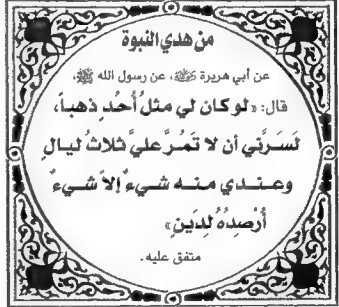 من هدي النبوة
عن أبي هريرة رضي الله عنه، عن رسول الله ﷺ،
قال: «لو كان لي مثلُ أُحُدٍ ذهباً،
لَسَرَّني أن لا تَمُرَّ عليَّ ثلاثُ ليالٍ
وعندي منه شيءٌ إلاَّ شيءٌ
أُرْصِدُهُ لِدَينٍ»
متفق عليه.